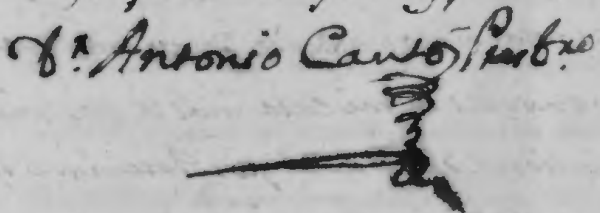 Dr. Antonio Canto Presb.ro